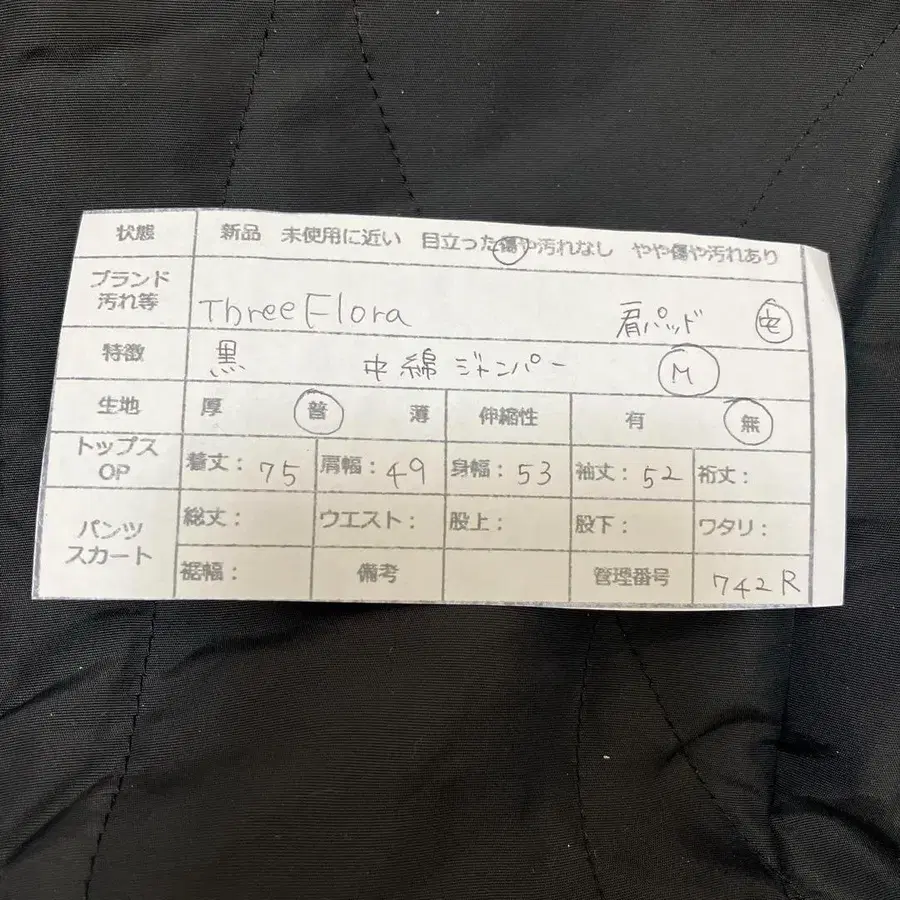 状態 新品 未使用に近い 目立った傷や汚れなし やや傷や汚れあり
ブランド
汚れ等 Three Flora 肩パッド
特徴 黒 中綿ジャンパー M
生地 厚 普 薄 伸縮性 有 無
トップス
OP 着丈: 75 肩幅: 49 身幅: 53 袖丈: 52 裄丈:
パンツ
スカート 総丈: ウエスト: 股上: 股下: ワタリ:
裾幅: 備考 管理番号 742R